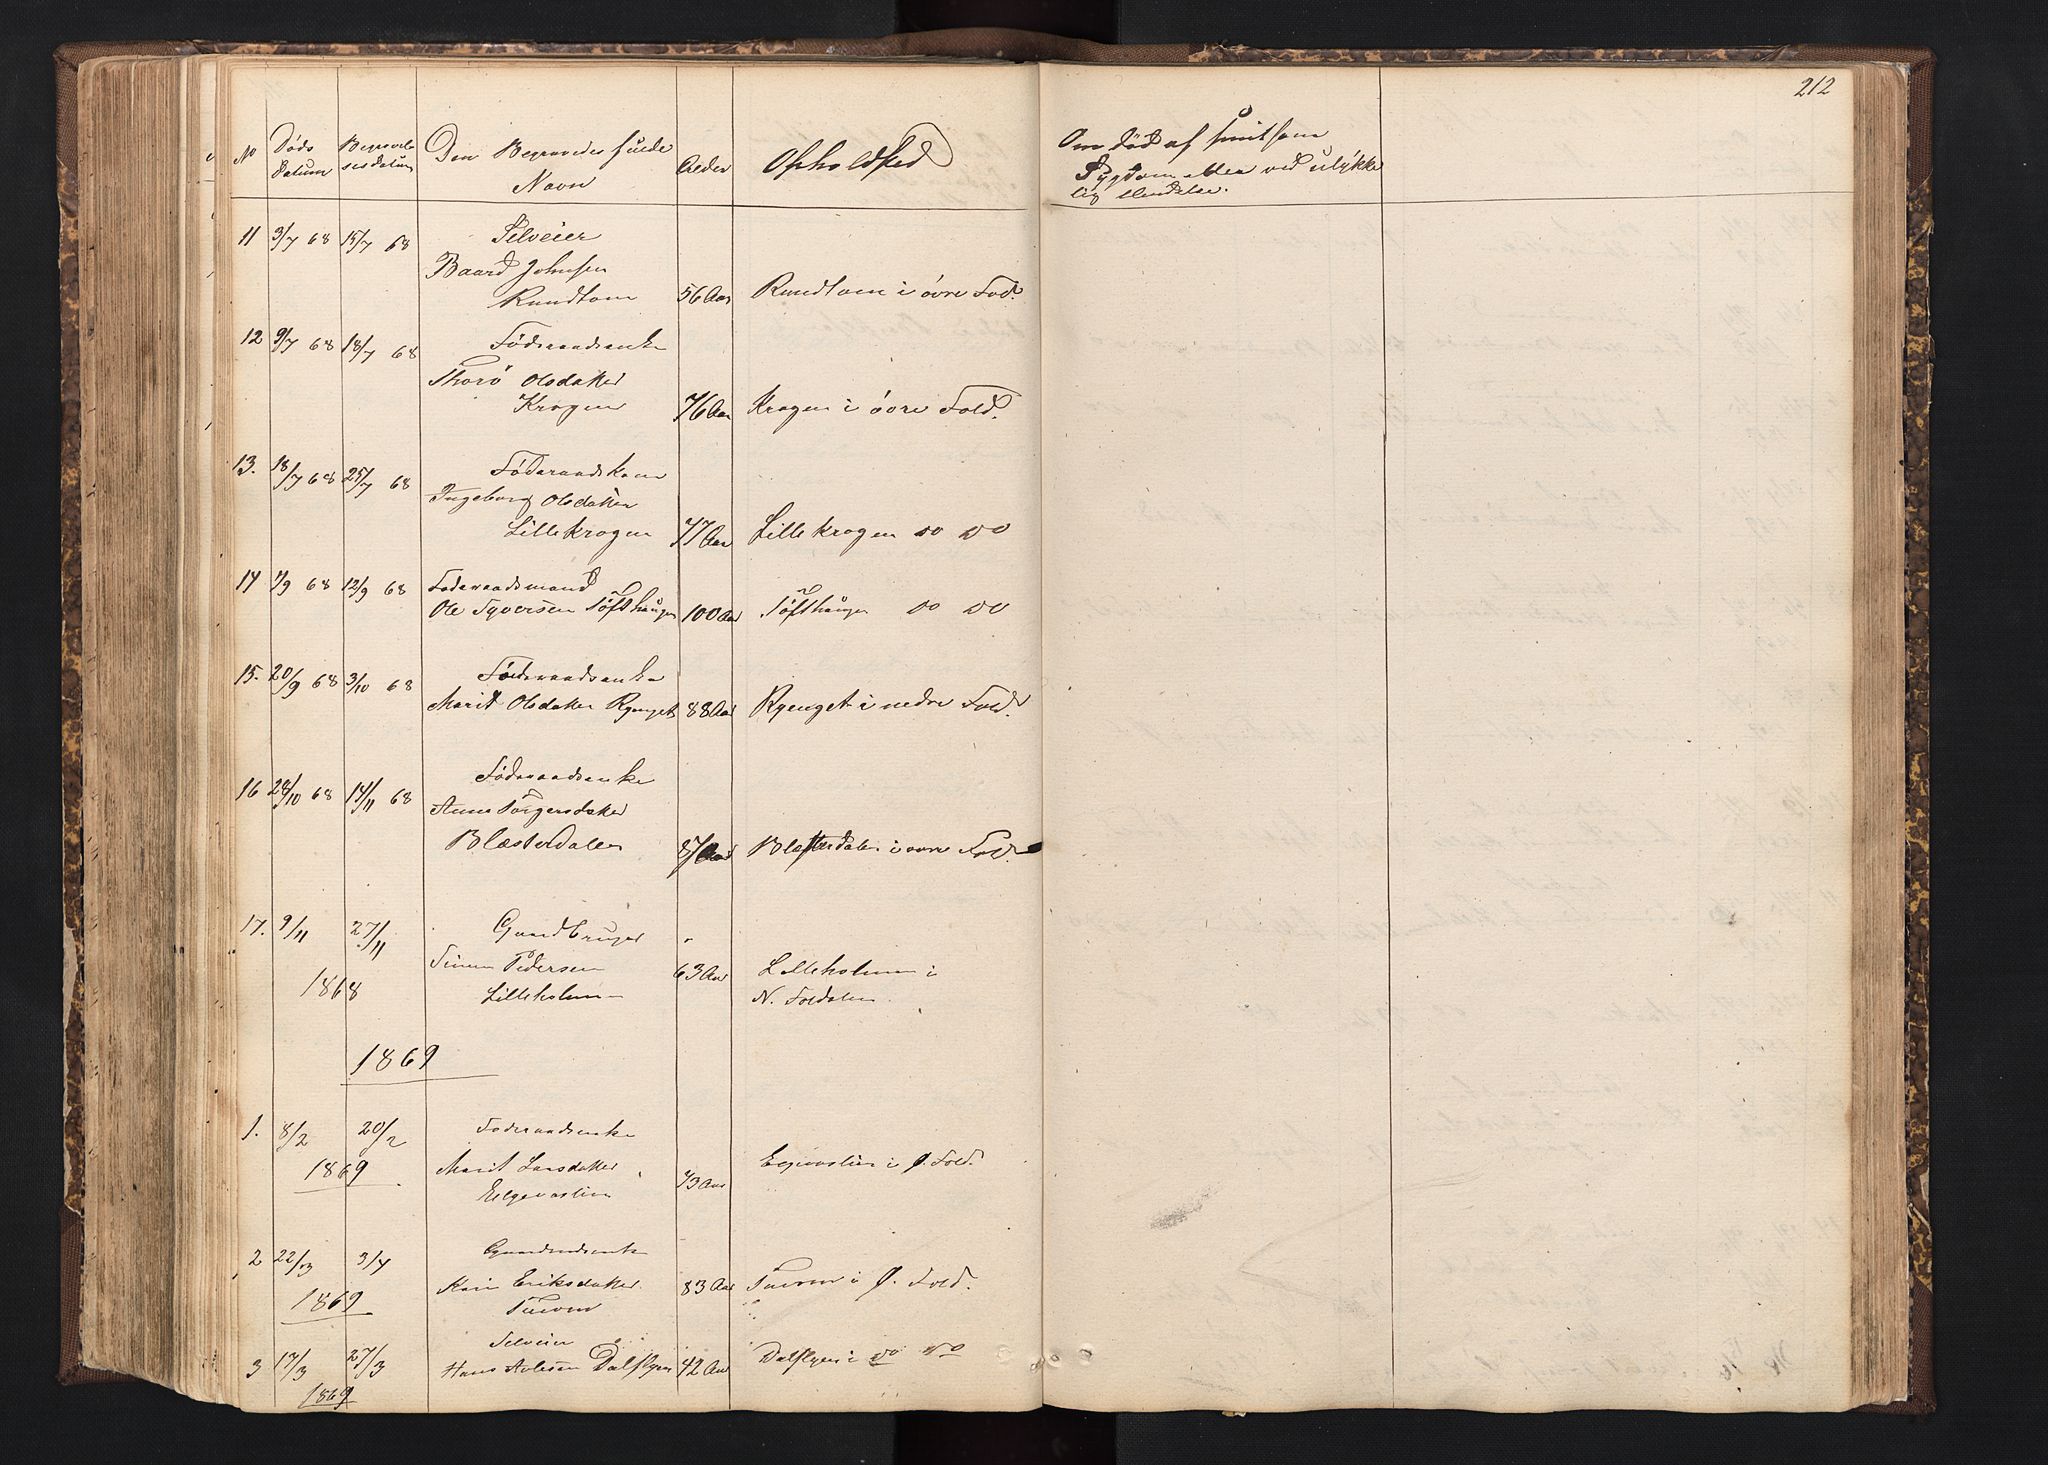 212
No Døds Datum Begravelsesdatum Den Begravedes fulde Navn Alder Opholdsted
Om død af smitsom
Sygdom eller ved ulykke
lig Hendelse.
11 3/7 68 15/7 68 Selveier
Baard Johnsen
Rundtom 56 Aar Rundtom i øvre Fold.
12 9/7 68 18/7 68 Føderaadsenke
Thorø Olsdatter
Krogen 76 Aar Krogen i øvre Fold.
13. 18/7 68 25/7 68 Føderaadskone
Ingeborg Olsdatter
Lillekrogen 77 Aar Lillekrogen do do
14 1/9 68 12/9 68 Føderaadsmand
Ole Syversen Tøfthaugen 100 Aar Tøfthaugen do do
15. 20/9 68 3/10 68 Føderaadsenke
Marit Olsdatter Ryenget 88 Aar Ryenget i nedre Fold.
16 28/10 68 14/11 68 Føderaadsenke
Anne Torgersdatter
Blæsterdalen 87 Aar Blæsterdalen i øvre Fold.
17. 9/11 27/11 Gaardbruger
Simen Pedersen 63 Aar Lilleholmen i
1868 Lilleholmen N. Foldalen
1869
1. 8/2 20/2 Føderaadsenke
1869 Marit Larsdatter 73 Aar i Ø. Fold.
2 22/3 3/4
1869 Kari Eriksdatter 83 Aar i Ø. Fold.
3 17/3 27/3 Selveier
Hans Dalflyen 42 Aar Dalflyen i do do
1869